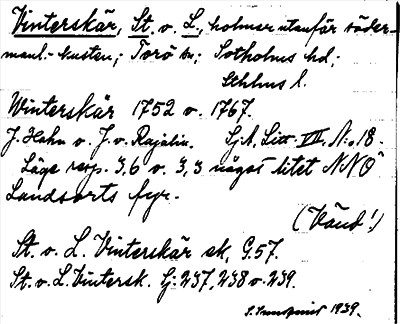 Vinterskär, St. o. L., holmar utanför söder-
manl.-kusten; Torö sn; Sotholms hd;
Sthlms l.
Winterskär 1752 o. 1767.
J. Hahn o. J. v. Rajalin. Sj.A. Litt. VII. N:o 18.
Läge resp. 3,6 o. 3,3 något litet NNO
Landsorts fyr.
(Vänd!)
St. o. L. Vinterskär ek, G.57.
St. o. L. Vintersk. Gj: 237, 238 o. 239.
1939.